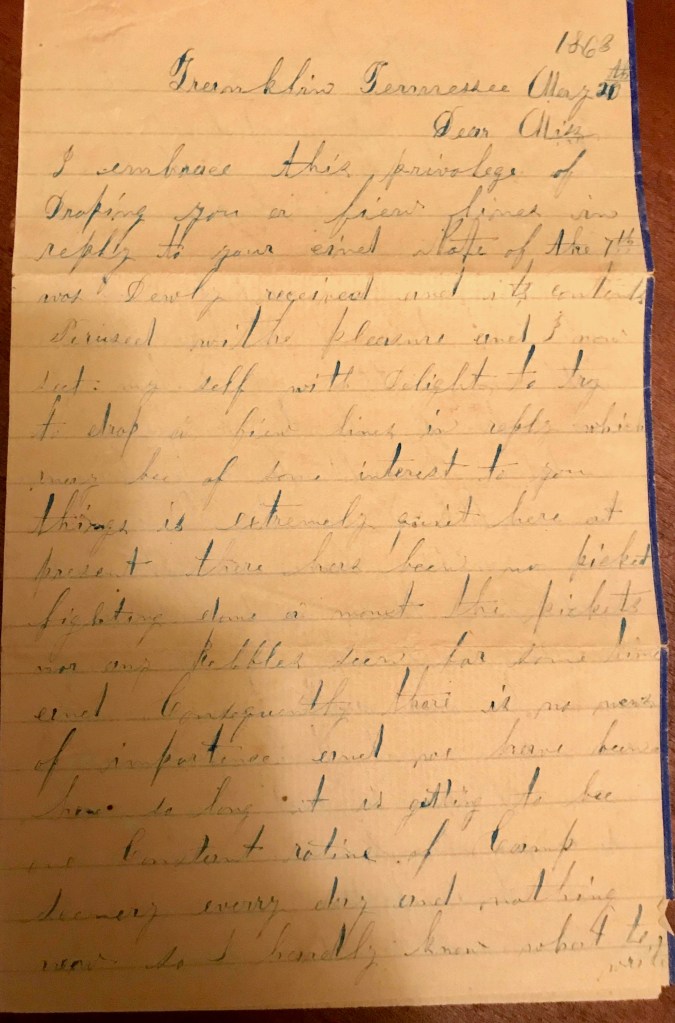 1863
Franklin Tennessee May 20th
Dear Miss
I embrace this privolege of
Droping you a fiew lines in
reply to your kind note of the 7th
was Dewly received and its contents
Perused withe pleasure and I now
seet my self with Delight to try
to drop a fiew lines in reply which
may bee of some interest to you
things is extremely quiet here at
present there has been no picket
fighting done a monst the pickets
nor any Rebbles seen for some time
and Consequently thare is no news
of importance and we have been
here so long it is getting to bee
one Constant rotine of Camp
scenery every day and nothing
new so I hardly know what to
write